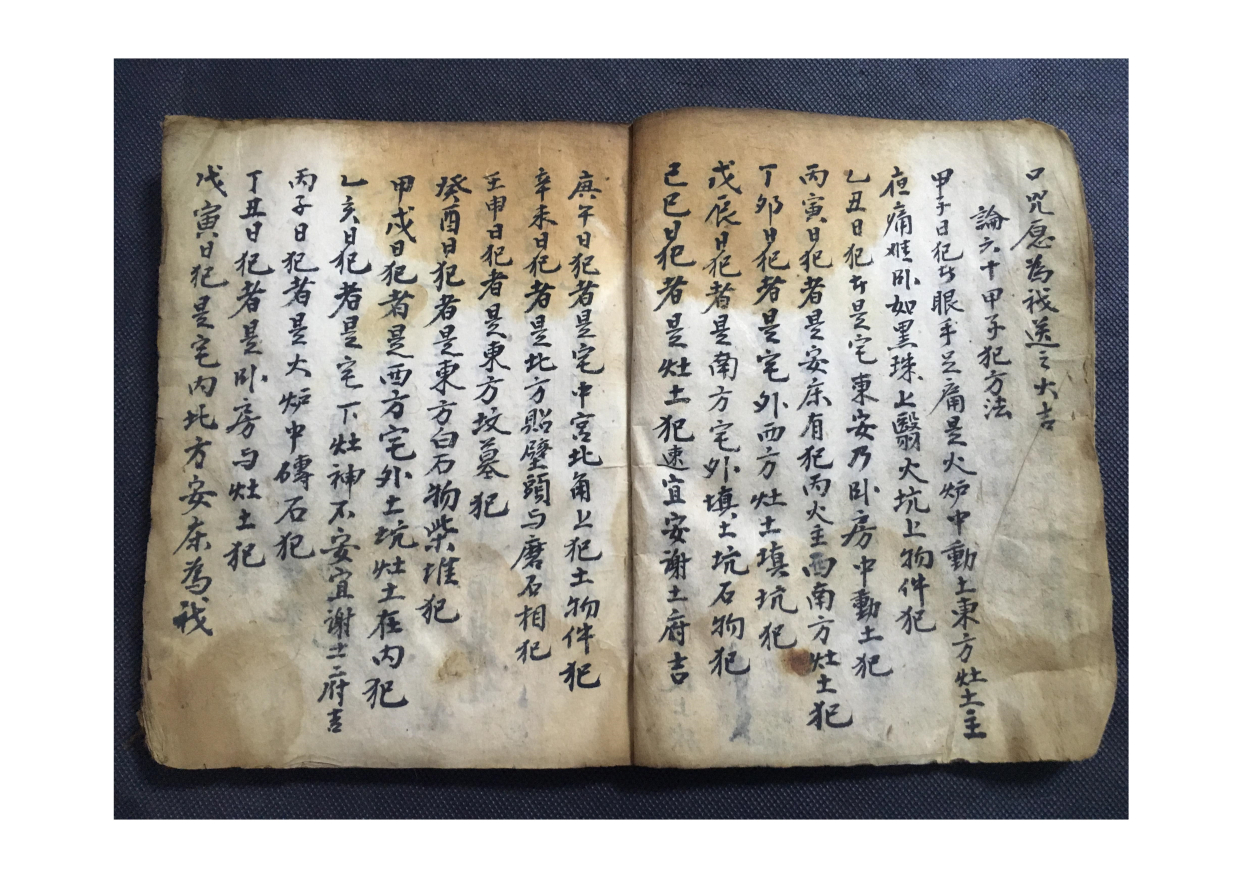 口咒愿為我送之大吉
論六十甲子犯方法
甲子日犯者眼手足痛是火炉中動土東方灶土主
夜痛难卧如黑珠上翳火坑上物件犯
乙丑日犯者是宅東安乃卧房中動土犯
丙寅日犯者是安床有犯丙火主西南方灶土犯
丁夘日犯者是宅外西方灶土填坑犯
戊辰日犯者是南方宅外填土坑石物犯
己巳日犯者是灶土犯速宜安谢土府吉
庚午日犯者是宅中宫北角上犯土物件犯
辛未日犯者是北方貼壁頭与磨石相犯
壬申日犯者是東方坟墓犯
癸酉日犯者是東方白石物柴堆犯
甲戌日犯者是西方宅外土坑灶土在内犯
乙亥日犯者是宅下灶神不安宜谢土府吉
丙子日犯者是火炉中磚石犯
丁丑日犯者是卧房与灶土犯
戊寅日犯是宅内北方安床為我